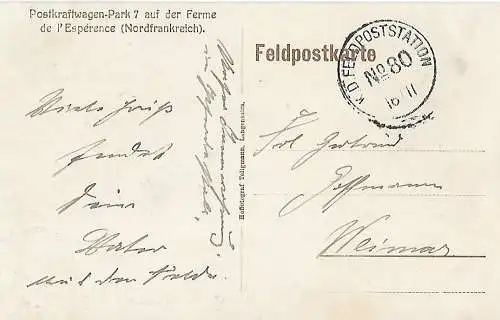 Postkraftwagen-Park 7 auf der Ferme
de l'Espérence (Nordfrankreich).
Feldpostkarte
K.D. FELDPOSTSTATION
No 80
16 11
Viele Grüße
sendet
Dein
Vater
aus dem Felde.
Hoffotograf Tellgmann, Langensalza.
Frl. Gertrud
Hoffmann
Weimar